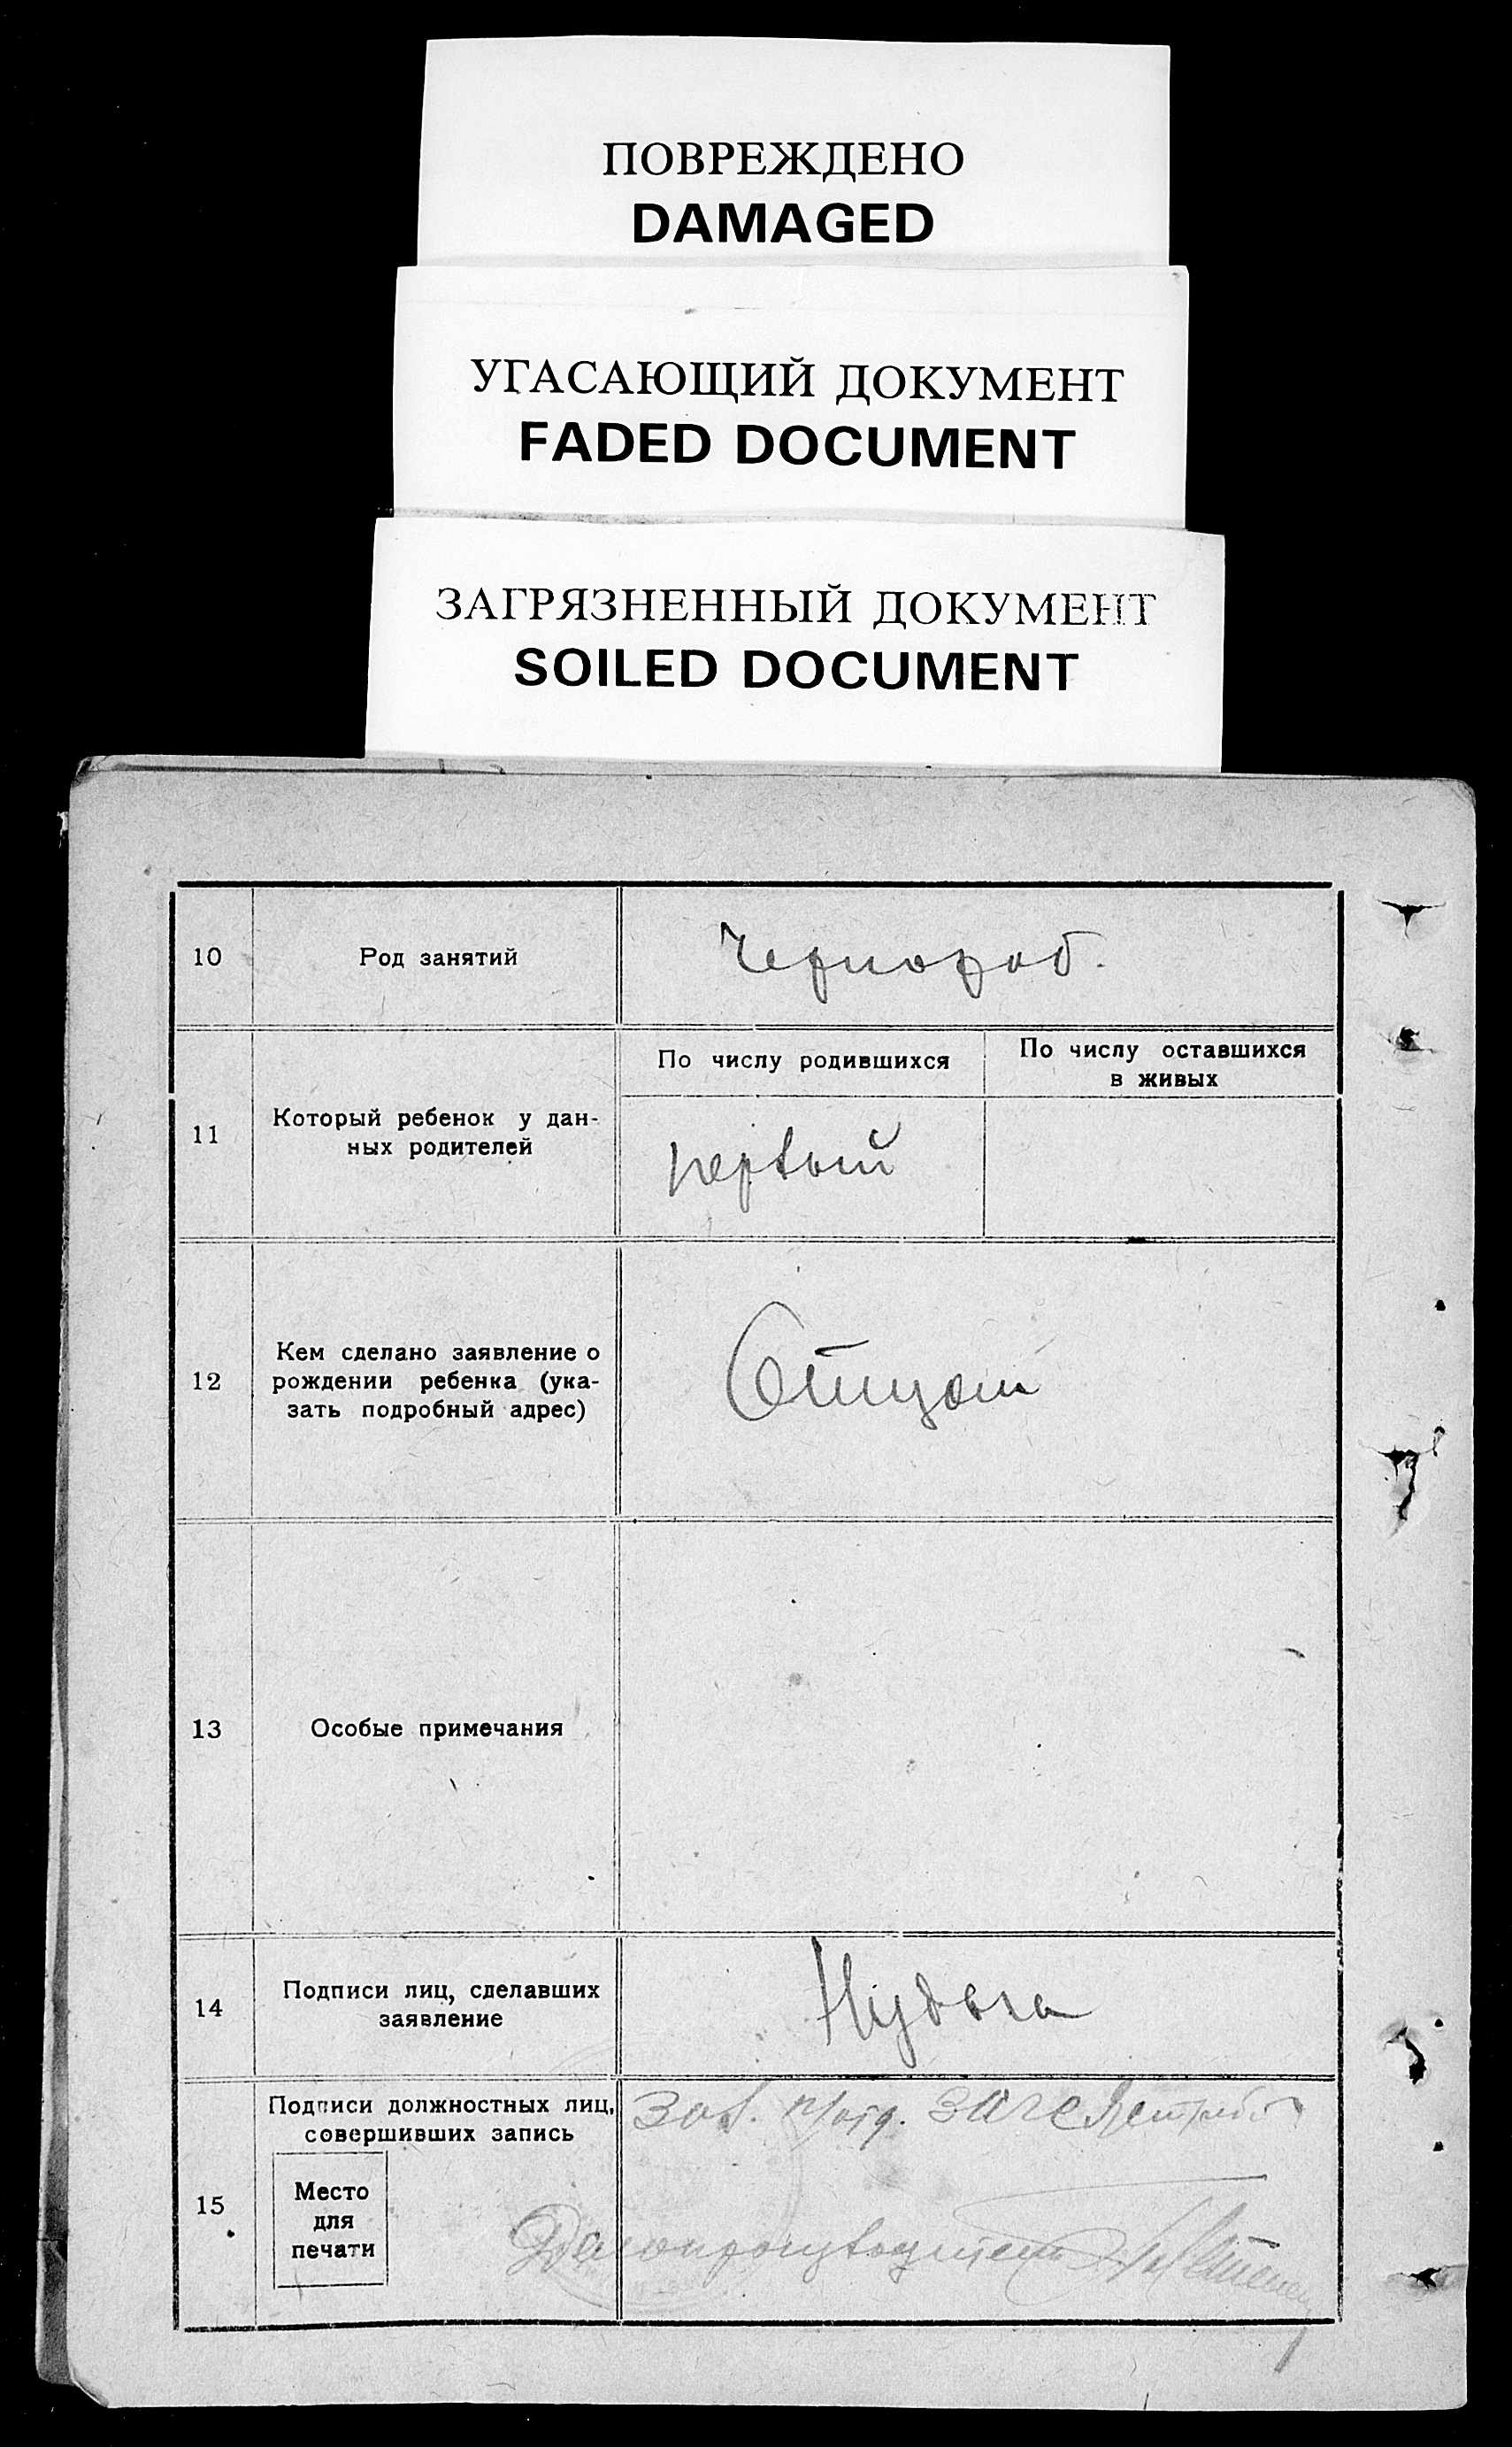 ПОВРЕЖДЕНО
DAMAGED
УГАСАЮЩИЙ ДОКУМЕНТ
FADED DOCUMENT
ЗАГРЯЗНЕННЫЙ ДОКУМЕНТ
SOILED DOCUMENT
10
Род занятий
Чернораб.
11
Который ребенок у дан-
ных родителей
По числу родившихся
По числу оставшихся
в живых
первый
12
Кем сделано заявление о
рождении ребенка (ука-
зать подробный адрес)
Отцом
13
Особые примечания
14
Подписи лиц, сделавших
заявление
Нудьга
15
Подписи должностных лиц,
совершивших запись
Место
для
печати
Зав. п/отд.
Делопроизводитель